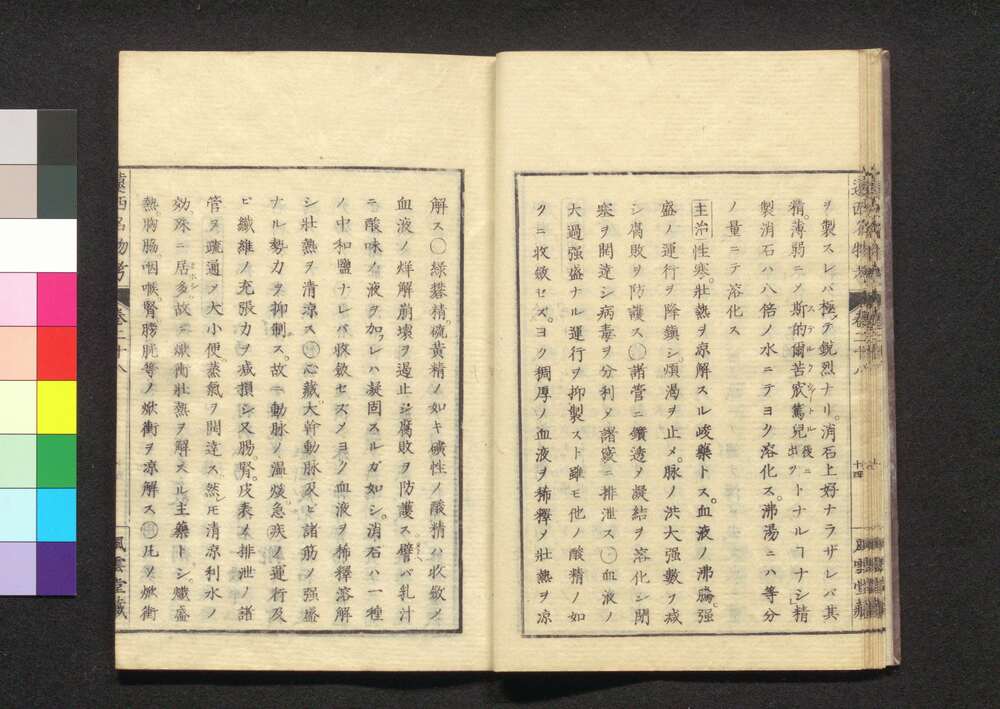 ヲ製スレバ極テ鋭烈ナリ。消石上好ナラザレバ其
精。薄弱ニメ斯的爾苦䆿篤兒後ニ出ヅトナルヿナシ」精
ステルクワートル
製消石ハ八倍ノ水ニテヨク溶化ス。沸湯ニハ等分
ノ量ニテ溶化ス
主治性寒。壯熱ヲ凉解スル峻藥トス。血液ノ沸騰。强
盛ノ運行ヲ降鎭シ。煩渇ヲ止メ。脉ノ洪大强數ヲ減
シ腐敗ヲ防護ス○諸管ニ鑛造ノ凝結ヲ溶化シ閉
塞ヲ開達シ病毒ヲ分利メ諸竅ニ排泄ス○血液ノ
大過强盛ナル運行ヲ抑製スト雖モ他ノ酸精ノ如
クニ收斂セズ。ヨク稠厚ノ血液ヲ稀釋メ壯熱ヲ凉
十四
解ス○緑礬精。硫黄精ノ如キ礦性ノ酸精ハ收斂メ
血液ノ烊解崩壞ヲ遏止シ腐敗ヲ防護ス譬バ乳汁
ニ酸味ノ液ヲ加フレハ凝固スルガ如シ。消石ハ一種
ノ中和鹽ナレバ收斂セズメヨク血液ヲ稀釋溶解
シ壯熱ヲ清凉ス○心藏大幹動脉及ビ諸筋ノ强盛
ナル勢力ヲ抑制ス。故ニ動脉ノ温煖。急疾ノ運行及
ビ纎維ノ充張力ヲ減損シ又肠。腎。皮表ノ排泄ノ諸
管ヲ疏通メ大小便。蒸氣ヲ開達ス。然モ清凉利水ノ
効殊ニ居多故ニ熾衝壯熱ヲ解スル主藥トシ。熾盛
熱。胸脇。咽喉。腎膀胱等ノ焮衝ヲ凉解ス○凡ソ焮衝
遠西名物考
卷二十八
風雲堂藏